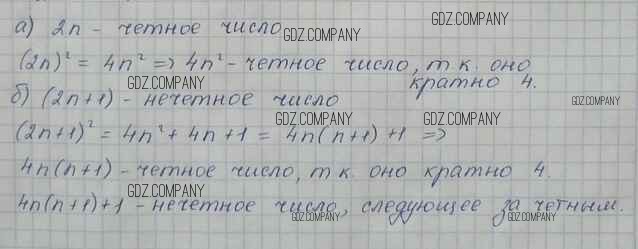 а) 2n - четное число GDZ.COMPANY GDZ.COMPANY
(2n)² = 4n² => 4n² - четное число, т к. оно
GDZ.COMPANY кратно 4.
б) (2n+1) - нечетное число GDZ.COMPANY
(2n+1)² = 4n² + 4n + 1 = 4n(n+1) + 1 =>
GDZ.COMPANY GDZ.COMPANY
4n(n+1) - четное число, т к. оно кратно 4.
GDZ.COMPANY
4n(n+1)+1 - нечетное число, следующее за четным.
GDZ.COMPANY GDZ.COMPANY